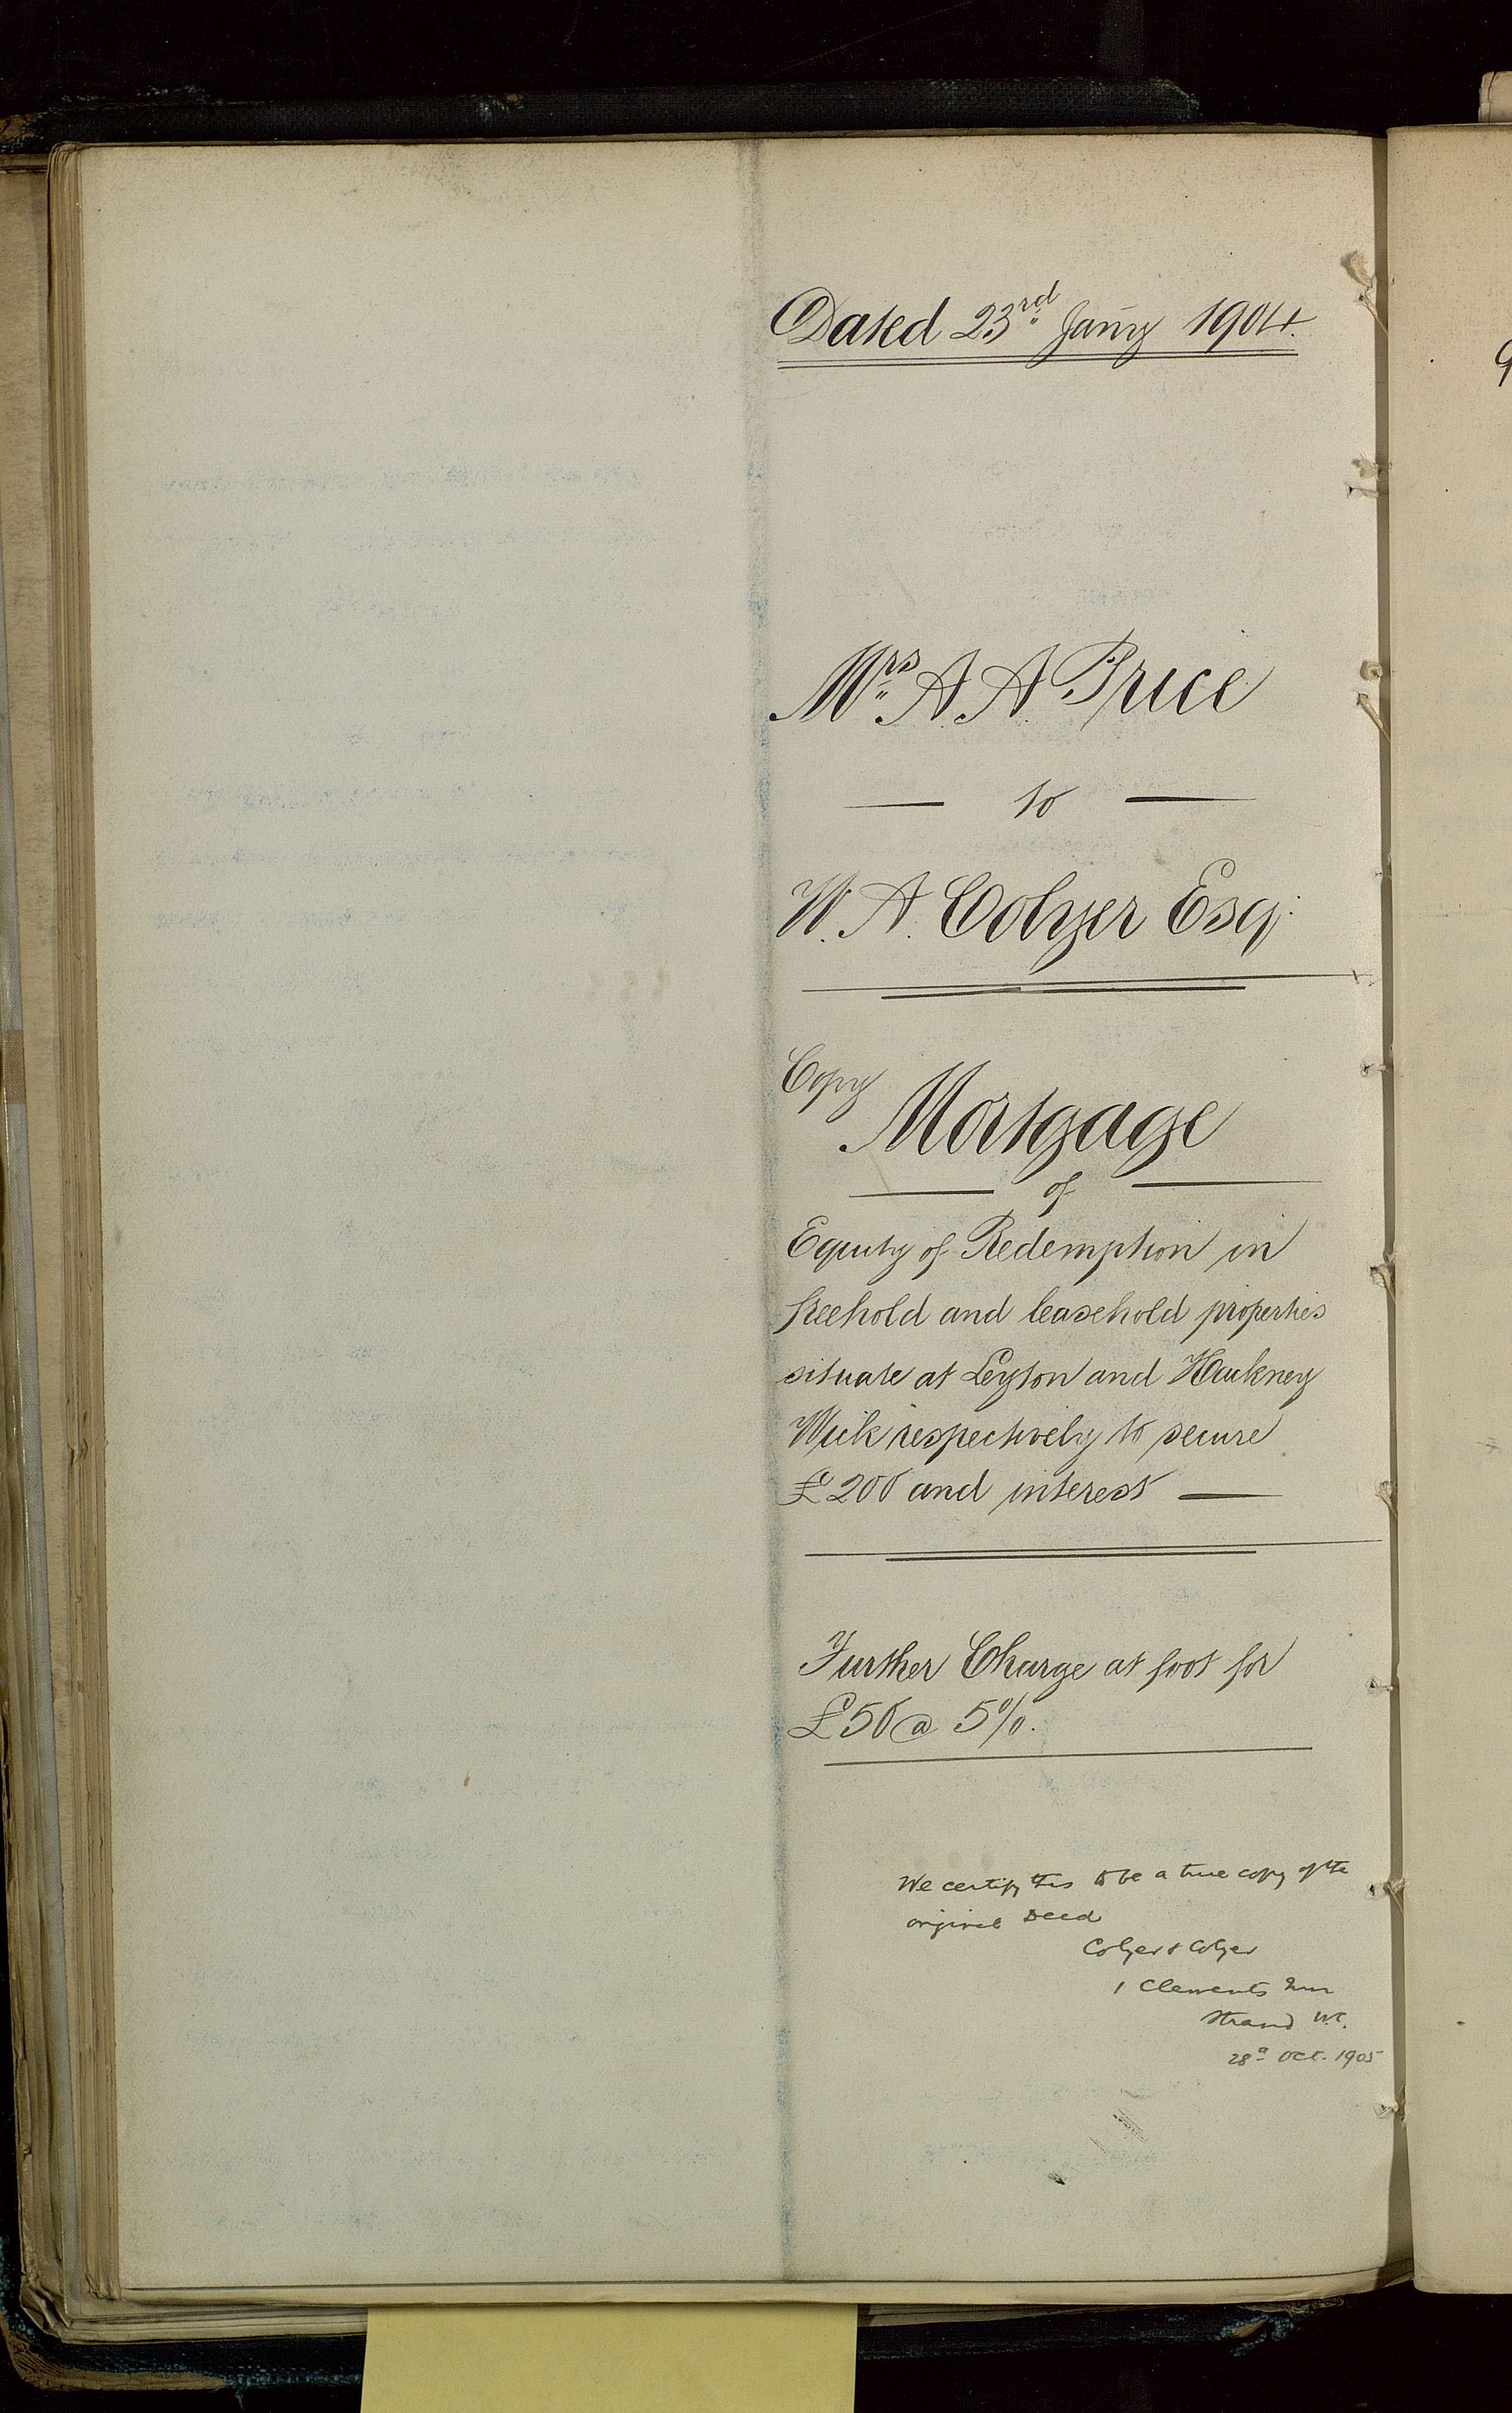 Dated 23rd Jany 1904.
Mrs A A Price
to
W. A. Colyer Esq:
Copy
Mortgage
of
Equity of Redemption in
freehold and leasehold properties
situate at Leyton and Hackney
Wick respectively to secure
£200 and interest
Further Charge at foot for
£50 @ 5%.
We certify this to be a true copy of the
original Deed
Colyer & Colyer
1 Clements Inn
Strand W.C.
28th Oct. 1905